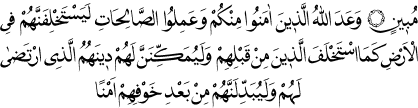 مُبِينٍ ۝ وَعَدَ اللهُ الَّذِينَ اٰمَنُوا مِنْكُمْ وَعَمِلُوا الصَّالِحَاتِ لَيَسْتَخْلِفَنَّهُمْ فِي
الْاَرْضِ كَمَا اسْتَخْلَفَ الَّذِينَ مِنْ قَبْلِهِمْ وَلَيُمَكِّنَنَّ لَهُمْ دِينَهُمُ الَّذِى ارْتَضٰى
لَهُمْ وَلَيُبَدِّلَنَّهُمْ مِنْ بَعْدِ خَوْفِهِمْ اَمْنًا